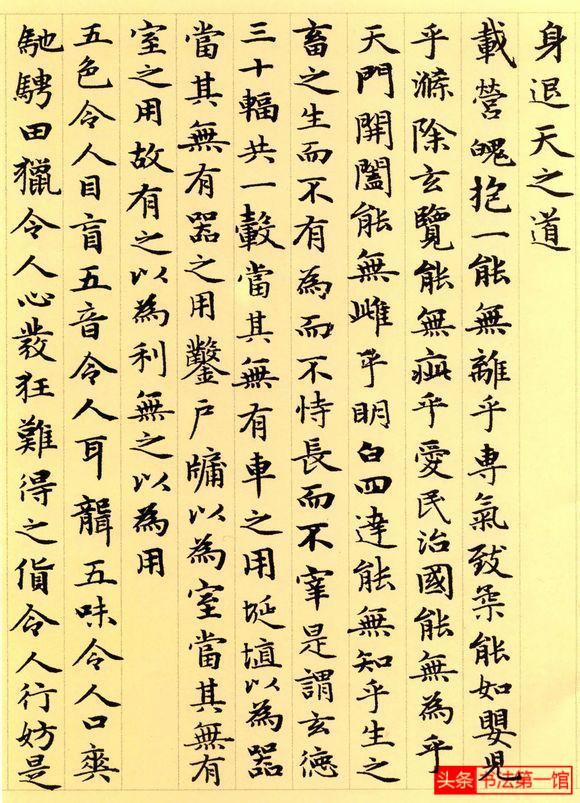 身退天之道
載營魄抱一能無離乎専氣致柔能如嬰児
乎滌除玄覽能無疵乎愛民治國能無為乎
天門開闔能無雌乎明白四達能無知乎生之
畜之生而不有為而不恃長而不宰是謂玄德
三十輻共一轂當其無有車之用埏埴以為器
當其無有器之用鑿戶牖以為室當其無有
室之用故有之以為利無之以為用
五色令人目盲五音令人耳聾五味令人口爽
馳騁田獵令人心發狂難得之貨令人行妨是
头条 书法第一馆